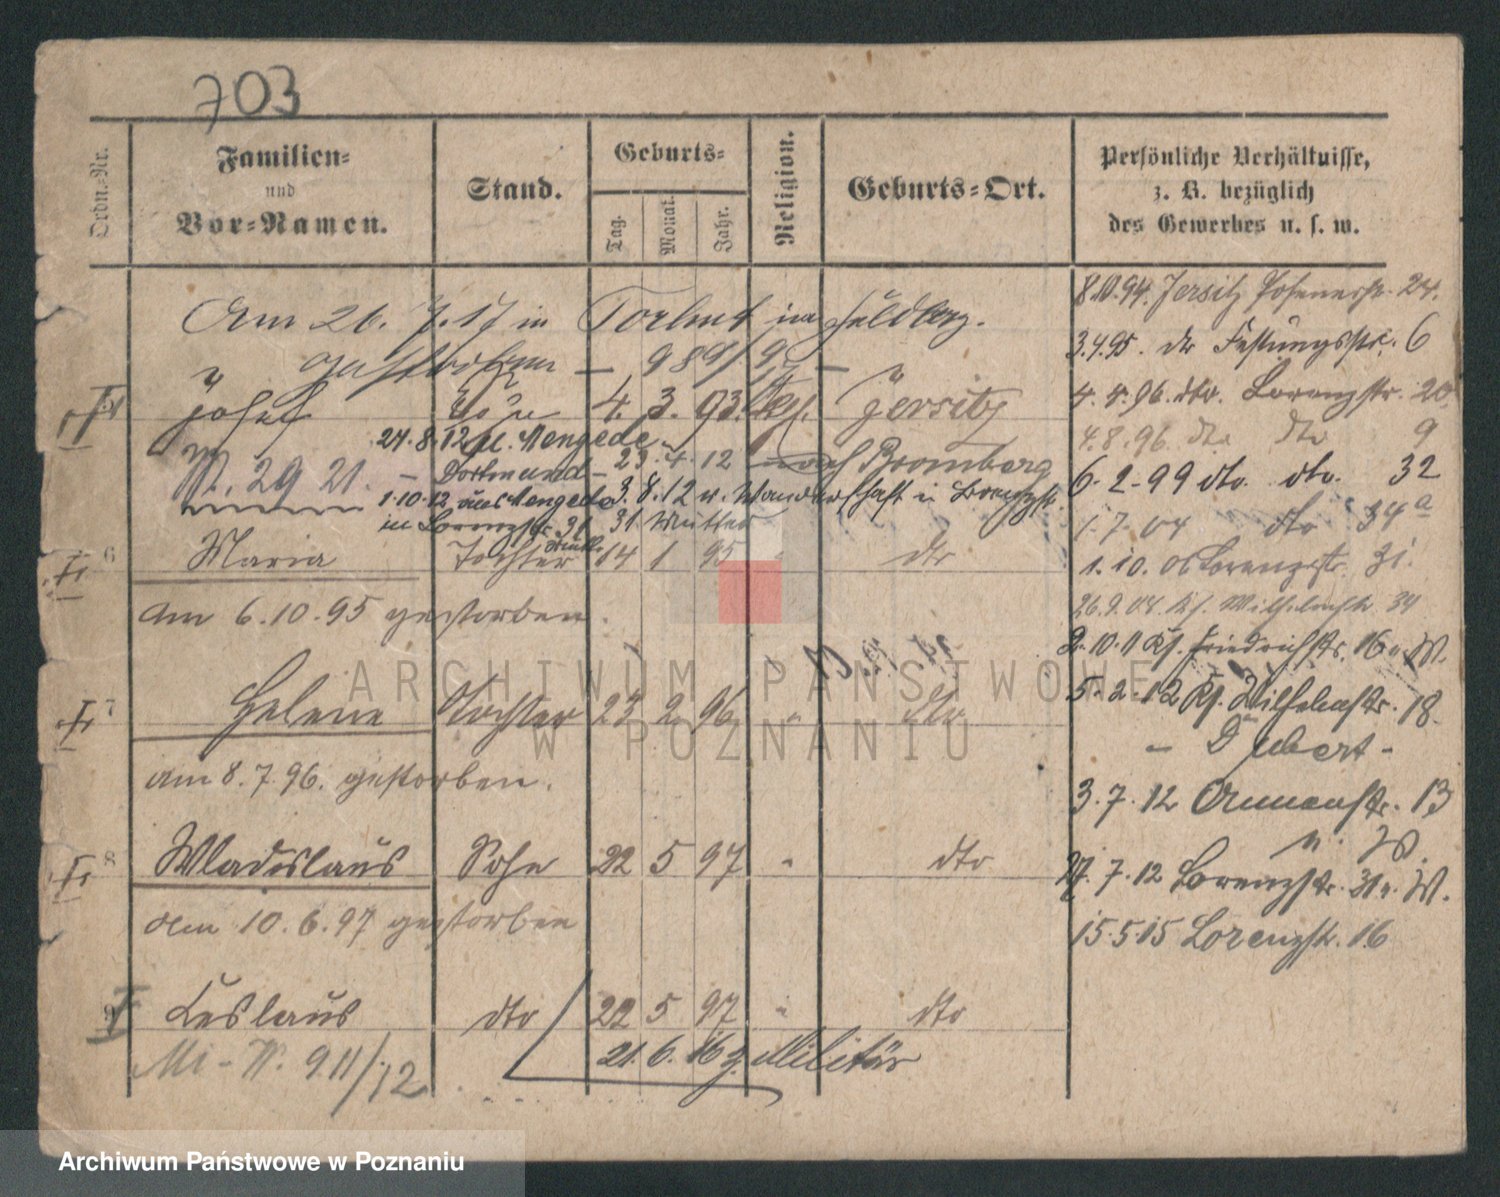 703
Ordn.-Nr.
Familien-
und
Vor-Namen.
Stand.
Geburts-
Tag.
Monat.
Jahr.
Religion.
Geburts-Ort.
Persönliche Verhältnisse,
z. B. bezüglich
des Gewerbes u. s. w.
8.10.94. Jersitz Posenerstr. 24.
Am 26. 7. 17 in im
3.4.95. dto Festungsstr. 6
gestorben — 989/17 —
4. 4. 96. dto. Lorenzstr. 20.
Josef Sohn 4. 3. 93. Jersitz
4.8.96. dto dto 9
24.8.12 Mengede
M. 29 21. — Dortmund — 23.4.12 nach Bromberg
6.2.99 dto. dto. 32
1.10.12 aus Mengede 3.8.12 v. Wanderschaft in Lorenzstr.
in Lorenzstr. 31 31 Mutter
1.7.04 dto 34a
6 Maria Tochter 14 1 95 " dto
1.10. 06 Lorenzstr. 31.
am 6.10.95 gestorben.
26.9.08. Wilhelmstr 34
2.10.11 Friedrichstr. 16 W.
7 Helene Tochter 23 2 96 " dto
5.2.12 Wilhelmstr. 18.
am 8.7.96. gestorben.
3.7.12 13
8 Wladislaus Sohn 22 5 97 " dto
27.7.12 Lorenzstr. 31 W.
am 10.6.97 gestorben
15.5.15 Lorenzstr. 16
9 Ceslaus dto 22 5 97 " dto
Mi-W. 911/12 21.6.16 z. Militär
ARCHIWUM PAŃSTWOWE
W POZNANIU
Archiwum Państwowe w Poznaniu